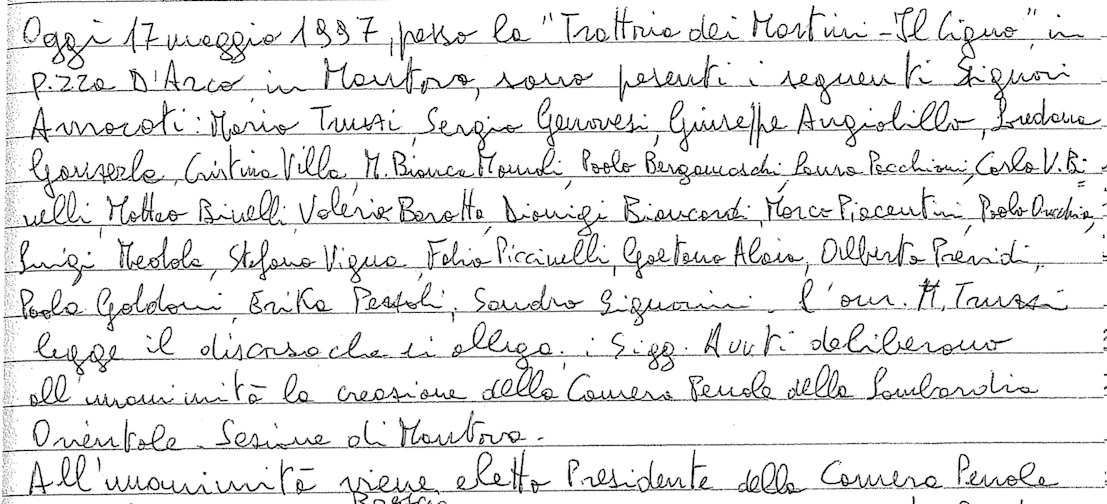 Oggi 17 maggio 1997, presso la "Trattoria dei Martini - Il Cigno", in
p.zza D'Arco, in Mantova, sono presenti i seguenti Signori
Avvocati: Mario Truzzi, Sergio Genovesi, Giuseppe Angiolillo, Loredana
Cristina Villa, M. Bianca Paolo Bergamaschi, Laura Pacchioni, Carlo V. Bi-
nelli, Matteo Binelli, Valeria Barotta, Dionigi Biancardi, Marco Piacentini, Paolo
Luigi Medola, Stefano Vigna, Fabio Piccinelli, Gaetano Alaia, Alberto Previdi,
Paola Goldoni, Erika Sandro Signorini. L'avv. M. Truzzi
legge il discorso che si allega. i Sigg. Avv.ti deliberano
all'unanimità la creazione della Camera Penale della Lombardia
Orientale - Sezione di Mantova.
All'unanimità viene eletto Presidente della Camera Penale